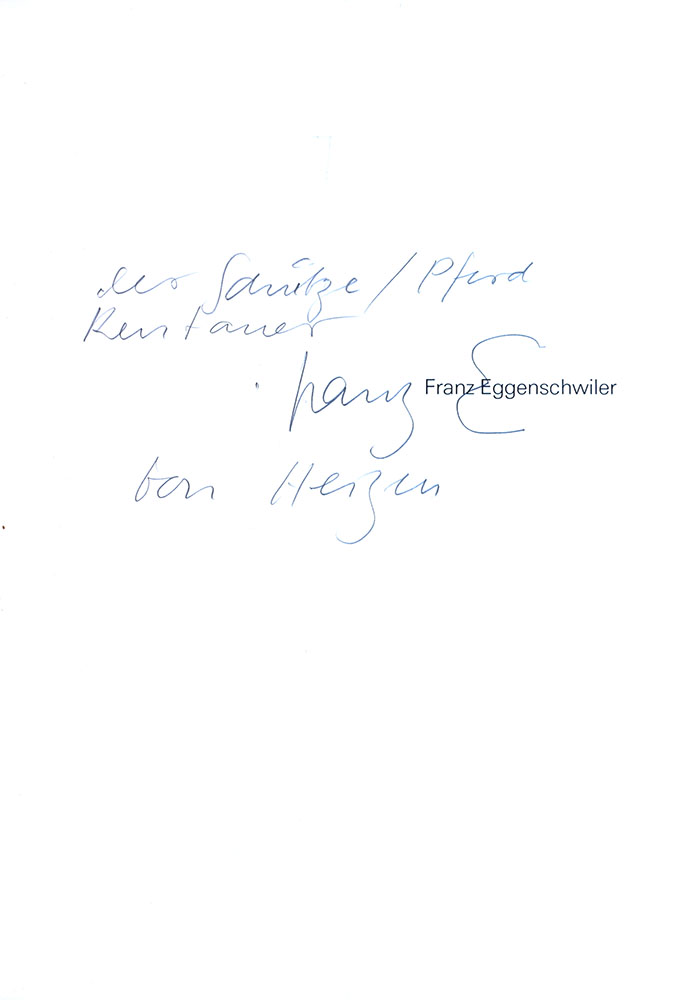 der Schütze / Pferd
Kentauer
Franz E
Franz Eggenschwiler
von Herzen